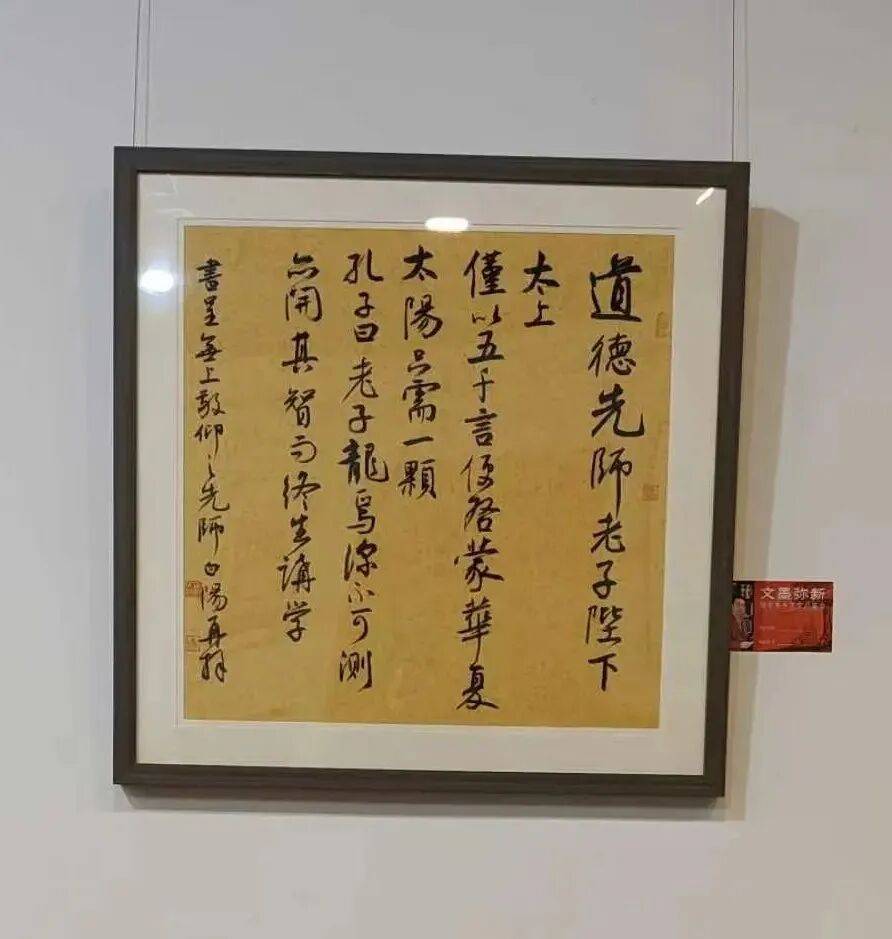 道德先師老子陛下
太上
僅以五千言便啓蒙華夏
太陽只需一顆
孔子曰老子龍焉深不可測
亦開其智而終生講学
書呈無上敬仰之先師白陽再拜
文墨弥新